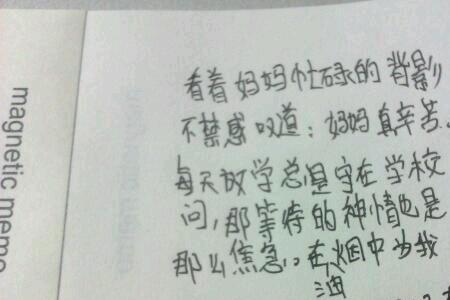 magnetic memo
看着妈妈忙碌的背影
不禁感叹道：妈妈真辛苦。
每天放学总是守在学校
问，那等待的神情也是
那么焦急。在烟中为我
油